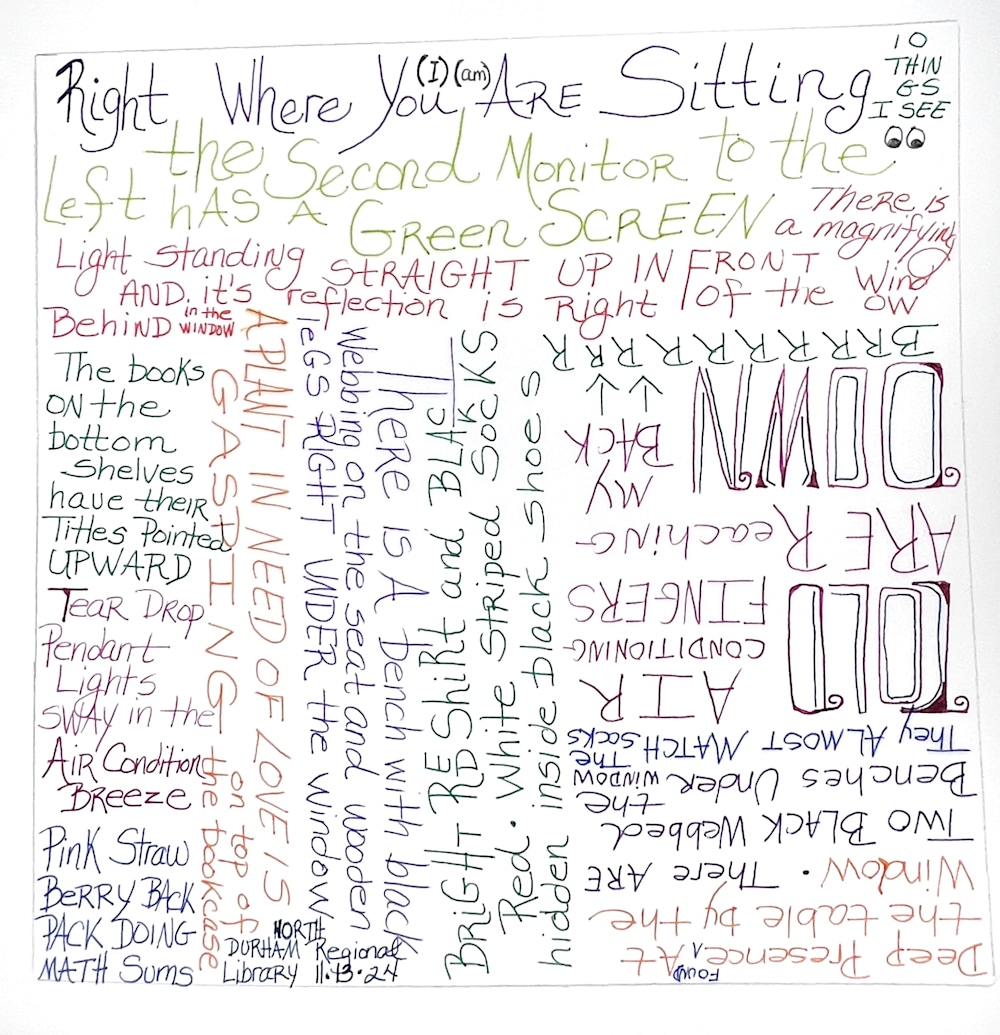 Right Where You (I) (am) ARE Sitting
10
THIN
GS
I SEE
the Second Monitor to the
Left HAS A Green SCREEN
There is
a magnifying
Light standing STRAIGHT UP IN FRONT
of the Wind
OW
AND it's reflection is Right
Behind in the
WINDOW
The books
ON the
bottom
Shelves
have their
Titles Pointed
UPWARD
Tear Drop
Pendant
Lights
SWAY in the
Air Condition
Breeze
Pink Straw
BERRY BACK
PACK DOING
MATH Sums
A PLANT IN NEED OF LOVE IS
GASPING on top of
the bookcase
There is A bench with black
Webbing on the seat and wooden
leGS RIGHT UNDER the window
BRIGHT RED Shirt and BLACK
Red. White Striped Socks
hidden inside black shoes
OLD
AIR
CONDITIONING
FINGERS
ARE Reaching
DOWN
MY
BACK
BRRRRRRRRR
Deep Presence Found At
the table by the
Window. There ARE
Two BLACK Webbed
Benches Under the
WINDOW
They ALMOST MATCH The
Socks
NORTH
DURHAM Regional
Library 11.13.24